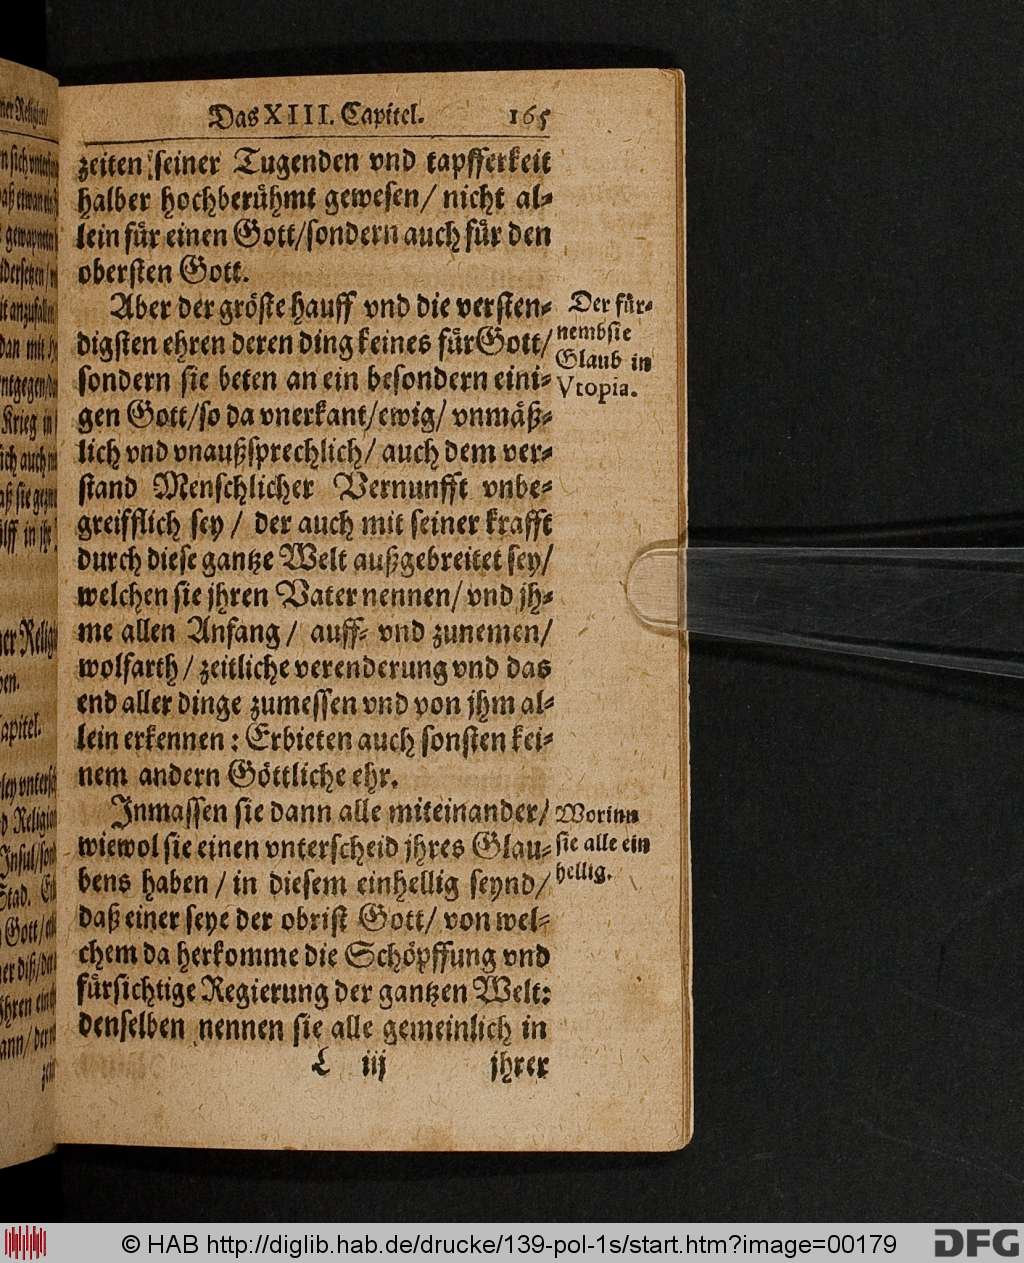 Das XIII. Capitel. 165
zeiten seiner Tugenden vnd tapfferkeit
halber hochberühmt gewesen/ nicht al-
lein für einen Gott/sondern auch für den
obersten Gott.
Aber der gröste hauff vnd die versten-
digsten ehren deren ding keines für Gott/
sondern sie beten an ein besondern eini-
gen Gott/so da vnerkant/ewig/ vnmäß-
lich vnd vnaußsprechlich/ auch dem ver-
stand Menschlicher Vernunfft vnbe-
greifflich sey/ der auch mit seiner krafft
durch diese gantze Welt außgebreitet sey/
welchen sie jhren Vater nennen/ vnd jh-
me allen Anfang/ auff- vnd zunemen/
wolfarth/ zeitliche verenderung vnd das
end aller dinge zumessen vnd von jhm al-
lein erkennen: Erbieten auch sonsten kei-
nem andern Göttliche ehr.
Der für-
nembste
Glaub in
Vtopia.
Inmassen sie dann alle miteinander/
wiewol sie einen vnterscheid jhres Glau-
bens haben/ in diesem einhellig seynd/
daß einer seye der obrist Gott/ von wel-
chem da herkomme die Schöpffung vnd
fürsichtige Regierung der gantzen Welt:
denselben nennen sie alle gemeinlich in
Worinn
sie alle ein
hellig.
L iij jhrer
© HAB http://diglib.hab.de/drucke/139-pol-1s/start.htm?image=00179
DFG